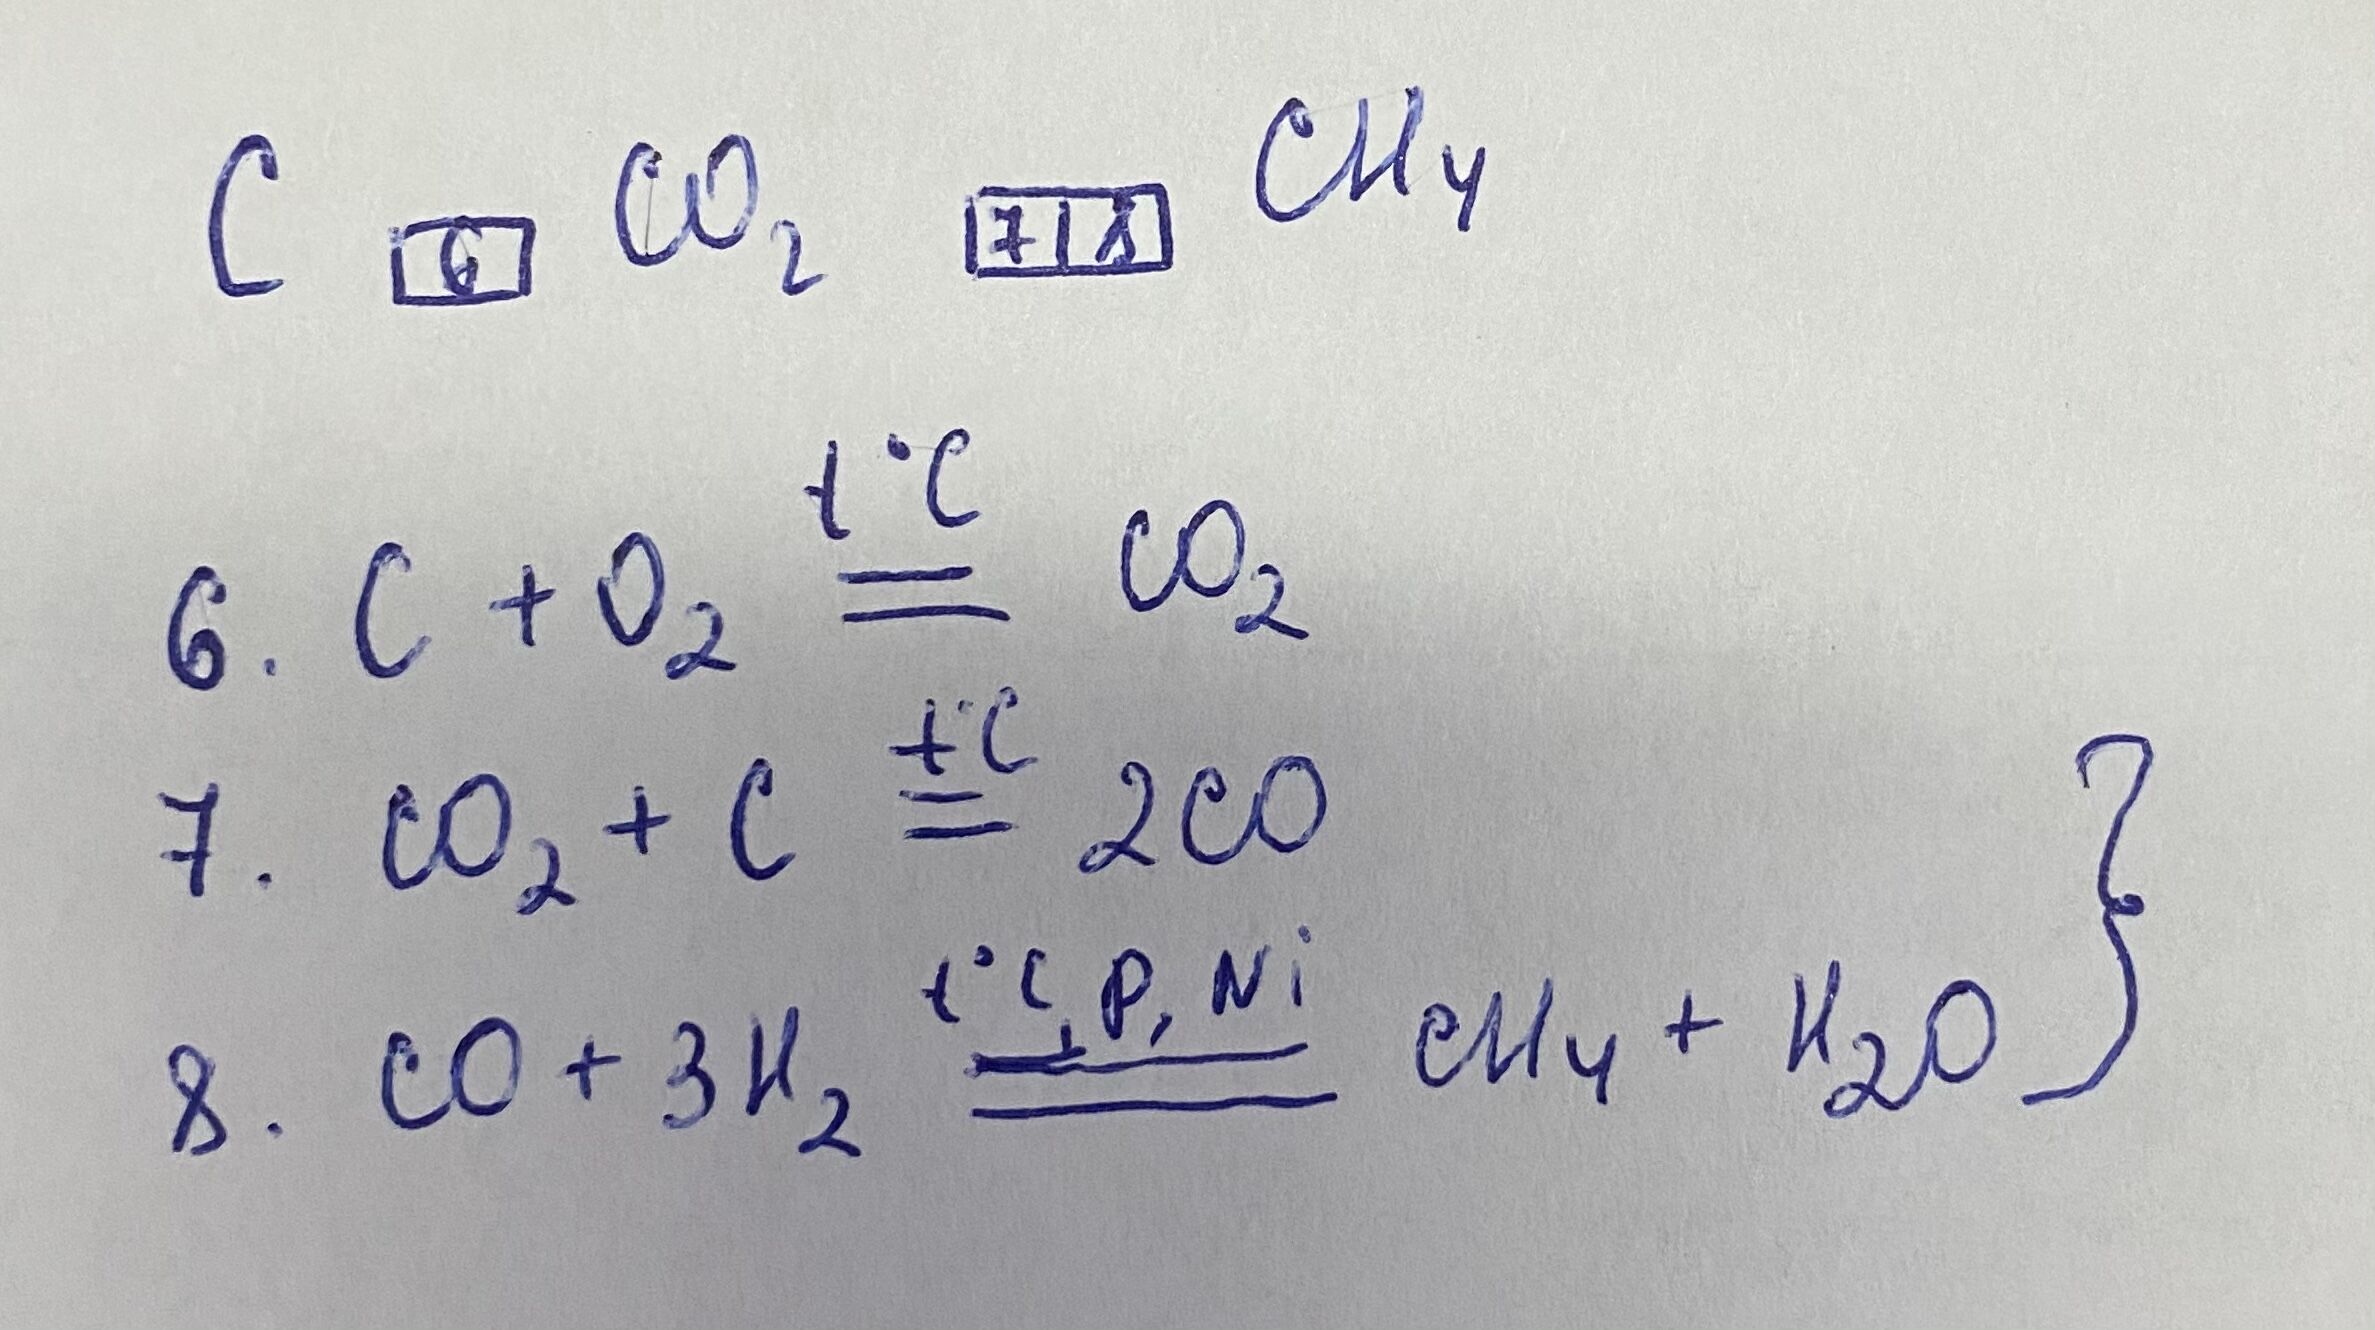 C 6 CO₂ 7 8 CH₄
6. C + O₂ =(t°C)= CO₂
7. CO₂ + C =(t°C)= 2CO
8. CO + 3H₂ =(t°C, P, Ni)= CH₄ + H₂O }